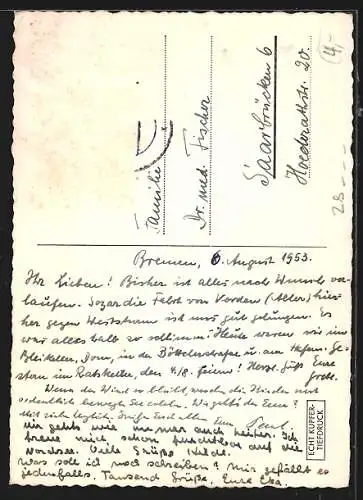 4,-
Familie
Dr. med. Fischer
Saarbrücken 6
Hoederathstr. 20.
28
Bremen, 6. August 1953.
Ihr Lieben! Bisher ist alles nach Wunsch ver-
laufen. Sogar die Fahrt von Norden (Adler) hier-
her gegen Weststurm ist uns gut gelungen. Es
war alles halb so schlimm. Heute waren wir im
Bleikeller, Dom, in der Böttcherstraße u. am Hafen. Ge-
stern im Ratskeller, den 4./8. feiern! Herzl. Grüße Eure
Wenn der Wind so bleibt werden die Kinder mal
ordentlich bewegte See erleben. Wie geht's der Eum?
Mit recht herzlichen Grüßen Euch allen Euer Paul.
Mir geht's wie immer auch heiter. Ich
freue mich schon furchtbar auf die
Nordsee. Viele Grüße Hilde.
Was soll ich noch schreiben? Mir gefällt es
jedenfalls. Tausend Grüße, Eure Eka.
ECHT KUPFER-
TIEFDRUCK